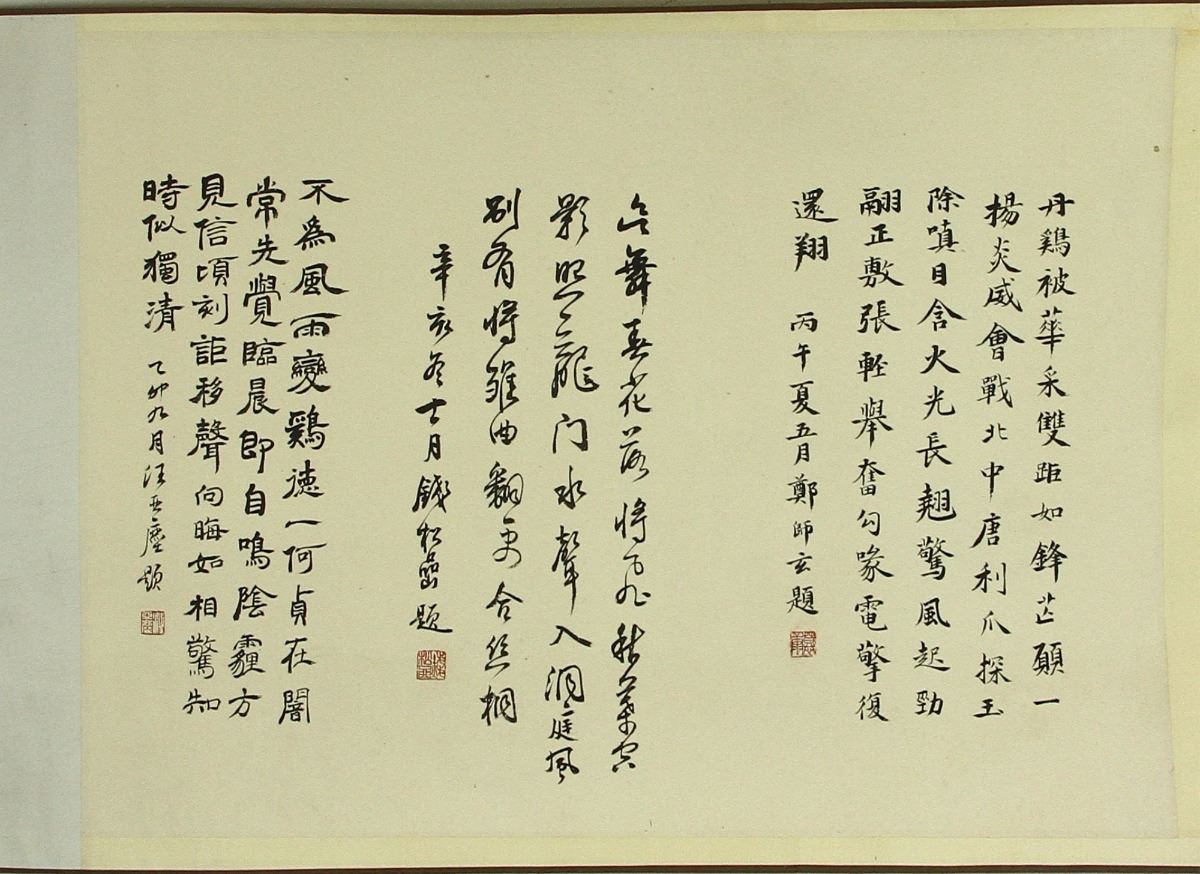 丹鷄被華采雙距如鋒芒願一
揚炎威會戰此中唐利爪探玉
除嗔目含火光長翹驚風起勁
翮正敷張輕舉奮勾喙電擊復
還翔 丙午夏五月鄭師玄題
欲舞春花落將飛秋葉空
影照龍门水聲入洞庭風
別有將雛曲翻更合丝桐
辛亥冬十一月錢松喦題
不為風雨變鷄德一何貞在闇
常先覺臨晨即自鳴陰霾方
見信頃刻詎移聲向晦如相驚知
時似獨清 乙卯九月汪亞塵題